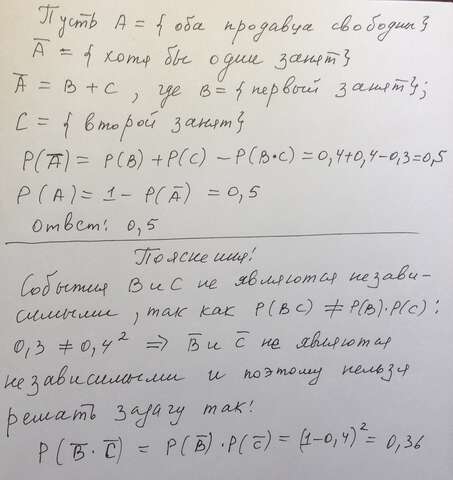 Пусть A = { оба продавца свободны}
A̅ = { хотя бы один занят}
A̅ = B + C , где B = { первый занят};
C = { второй занят}
P(A̅) = P(B) + P(C) − P(B·C) = 0,4+0,4−0,3=0,5
P(A) = 1 − P(A̅) = 0,5
Ответ: 0,5
Пояснения!
События B и C не являются незави-
симыми, так как P(BC) ≠ P(B)·P(C):
0,3 ≠ 0,4² ⇒ B̅ и C̅ не являются
независимыми и поэтому нельзя
решать задачу так!
P(B̅·C̅) = P(B̅)·P(C̅) = (1−0,4)² = 0,36